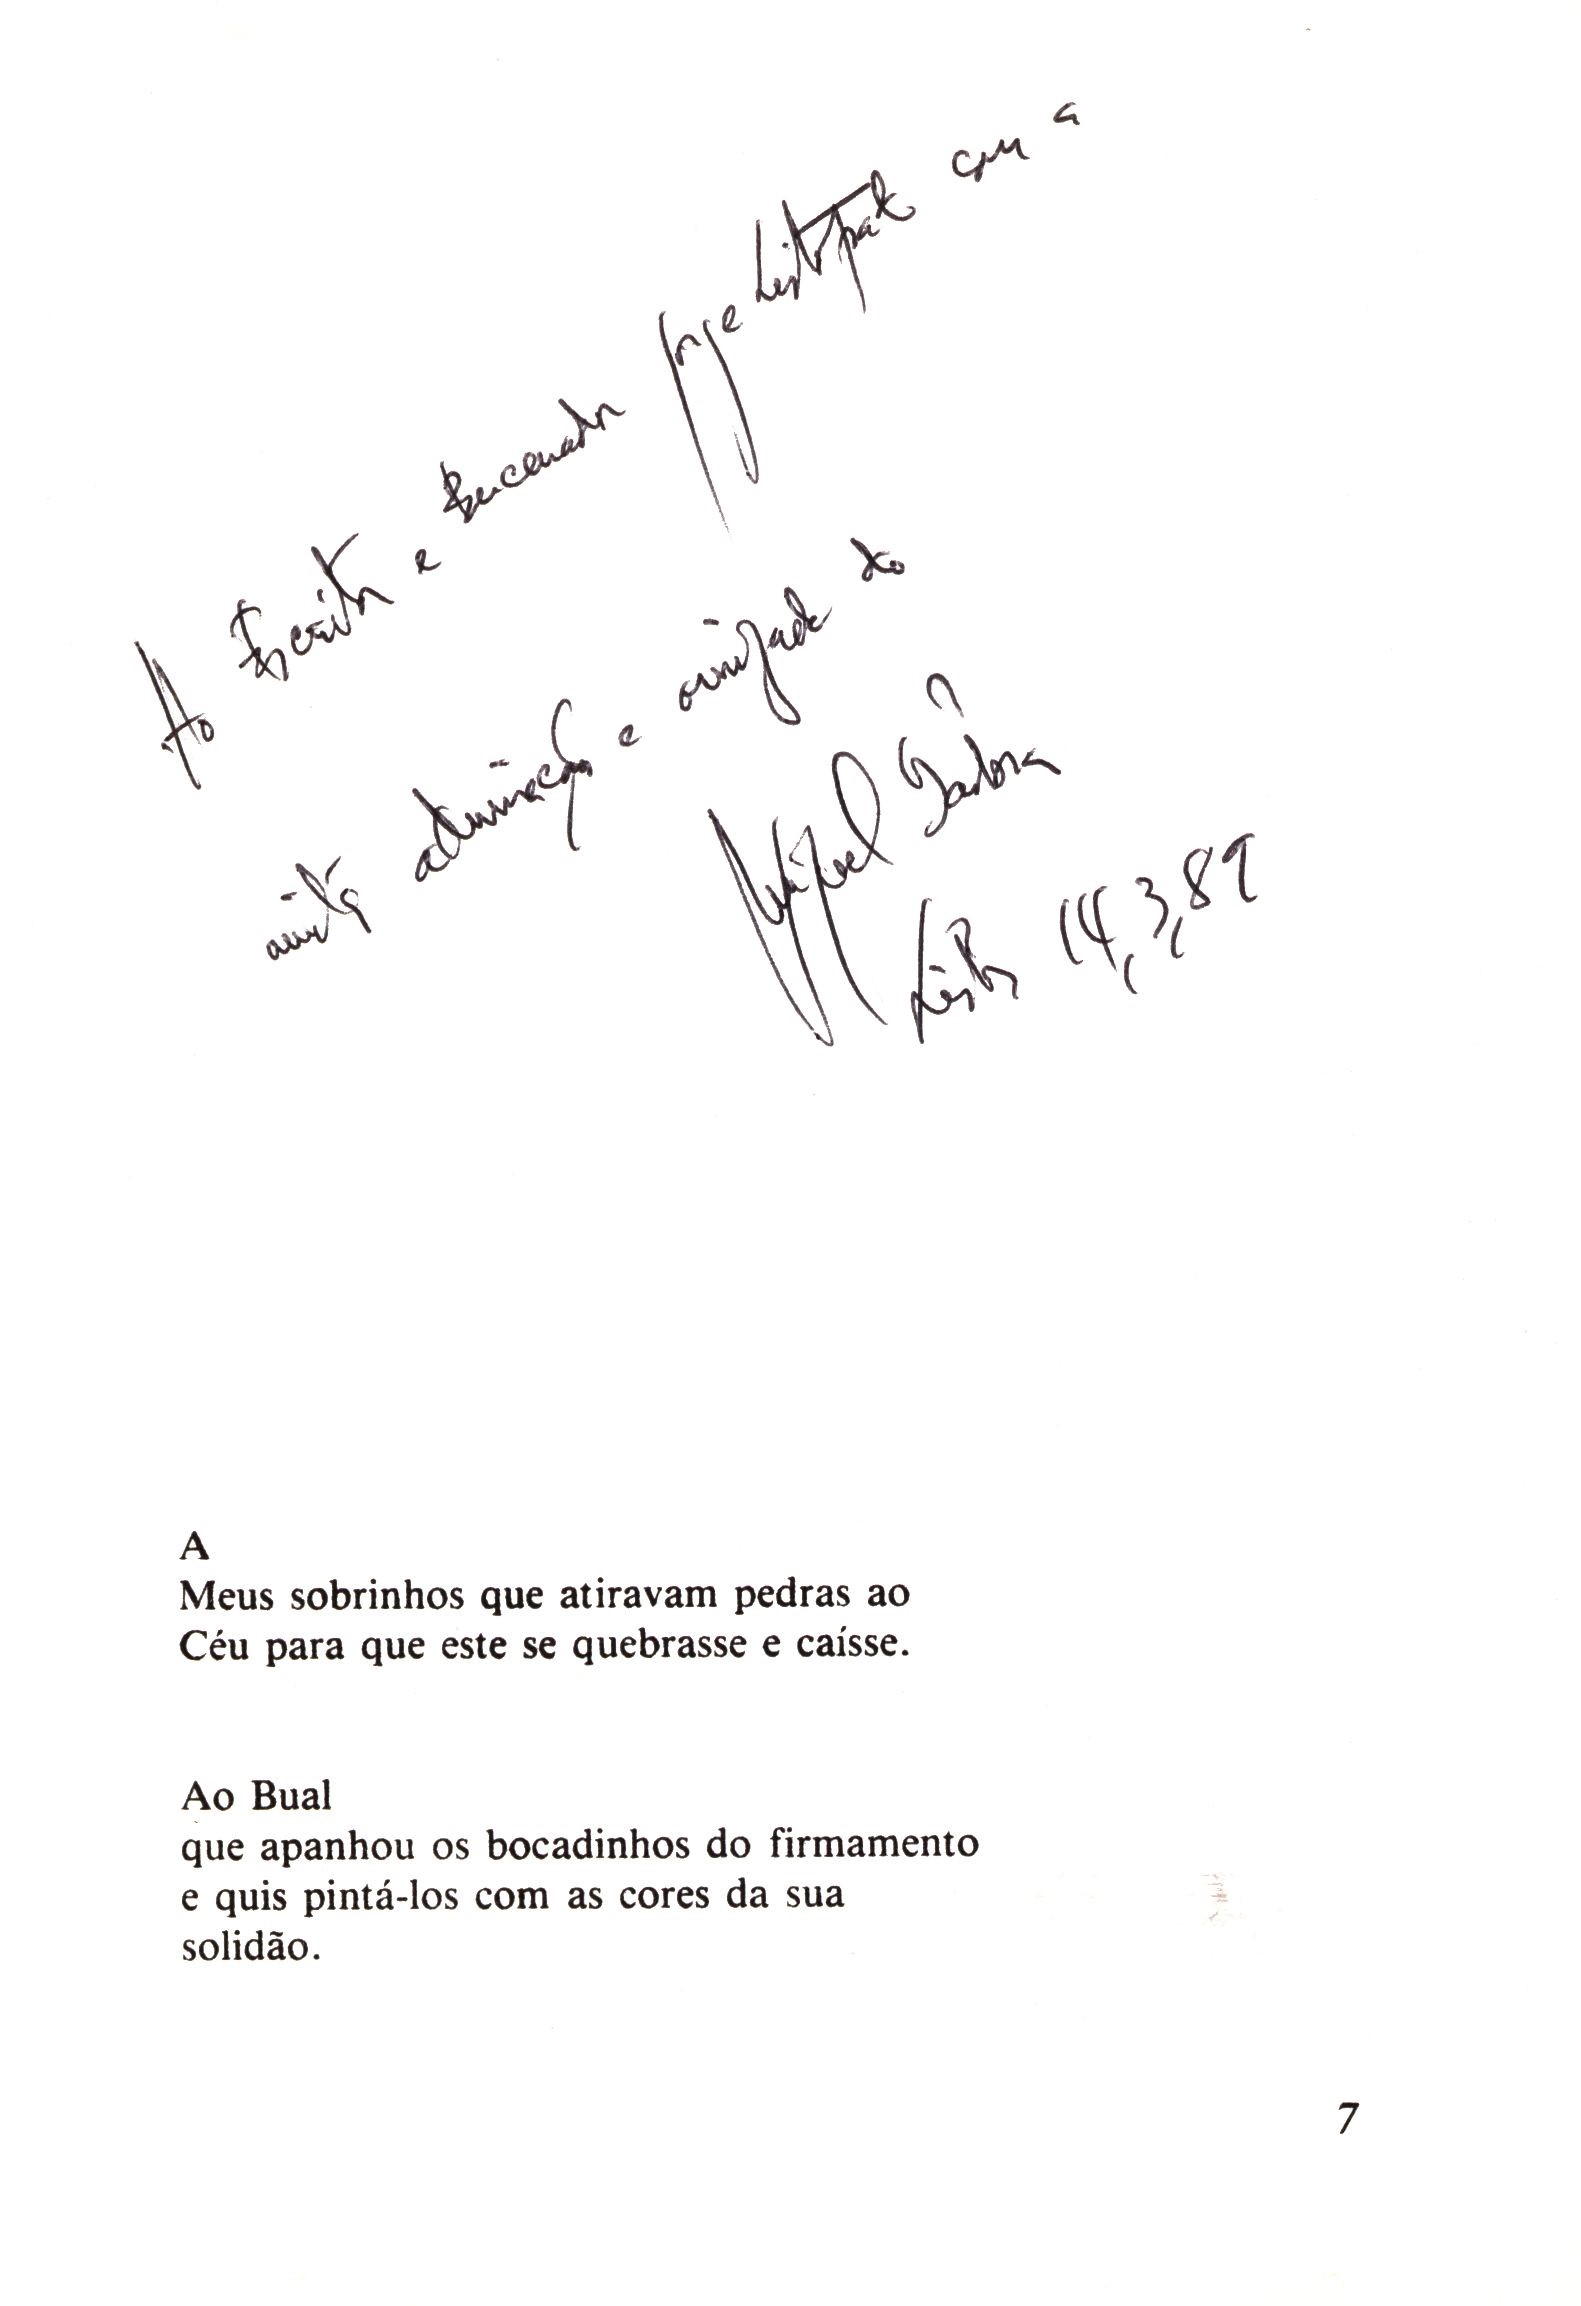 Ao Escritor e Encenador Jorge Listopad com a
minha admiração e amizade do
Miguel Barbosa
Lisboa 14,3,89
A
Meus sobrinhos que atiravam pedras ao
Céu para que este se quebrasse e caísse.
Ao Bual
que apanhou os bocadinhos do firmamento
e quis pintá-los com as cores da sua
solidão.
7